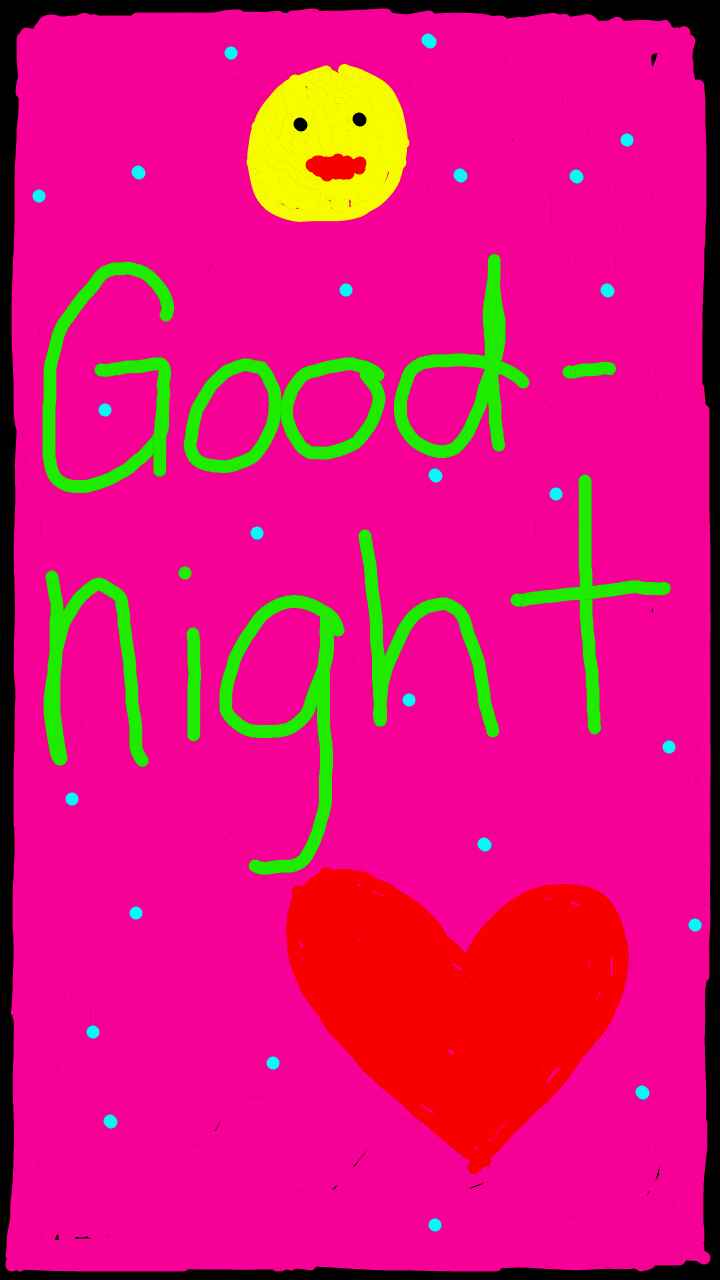 Good-
night